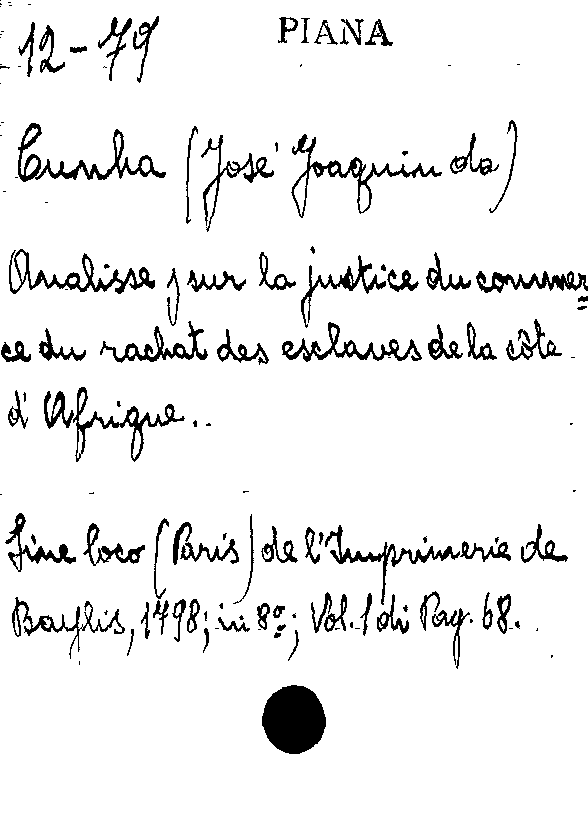 12-79 PIANA
Cunha (José Joaquin da)
Analisse sur la justice du commer=
ce du rachat des esclaves de la côte
d'Afrique..
Sine loco (Paris) de l'Imprimerie de
Baylis, 1798; in 8º; Vol. 1 di Pag. 68.